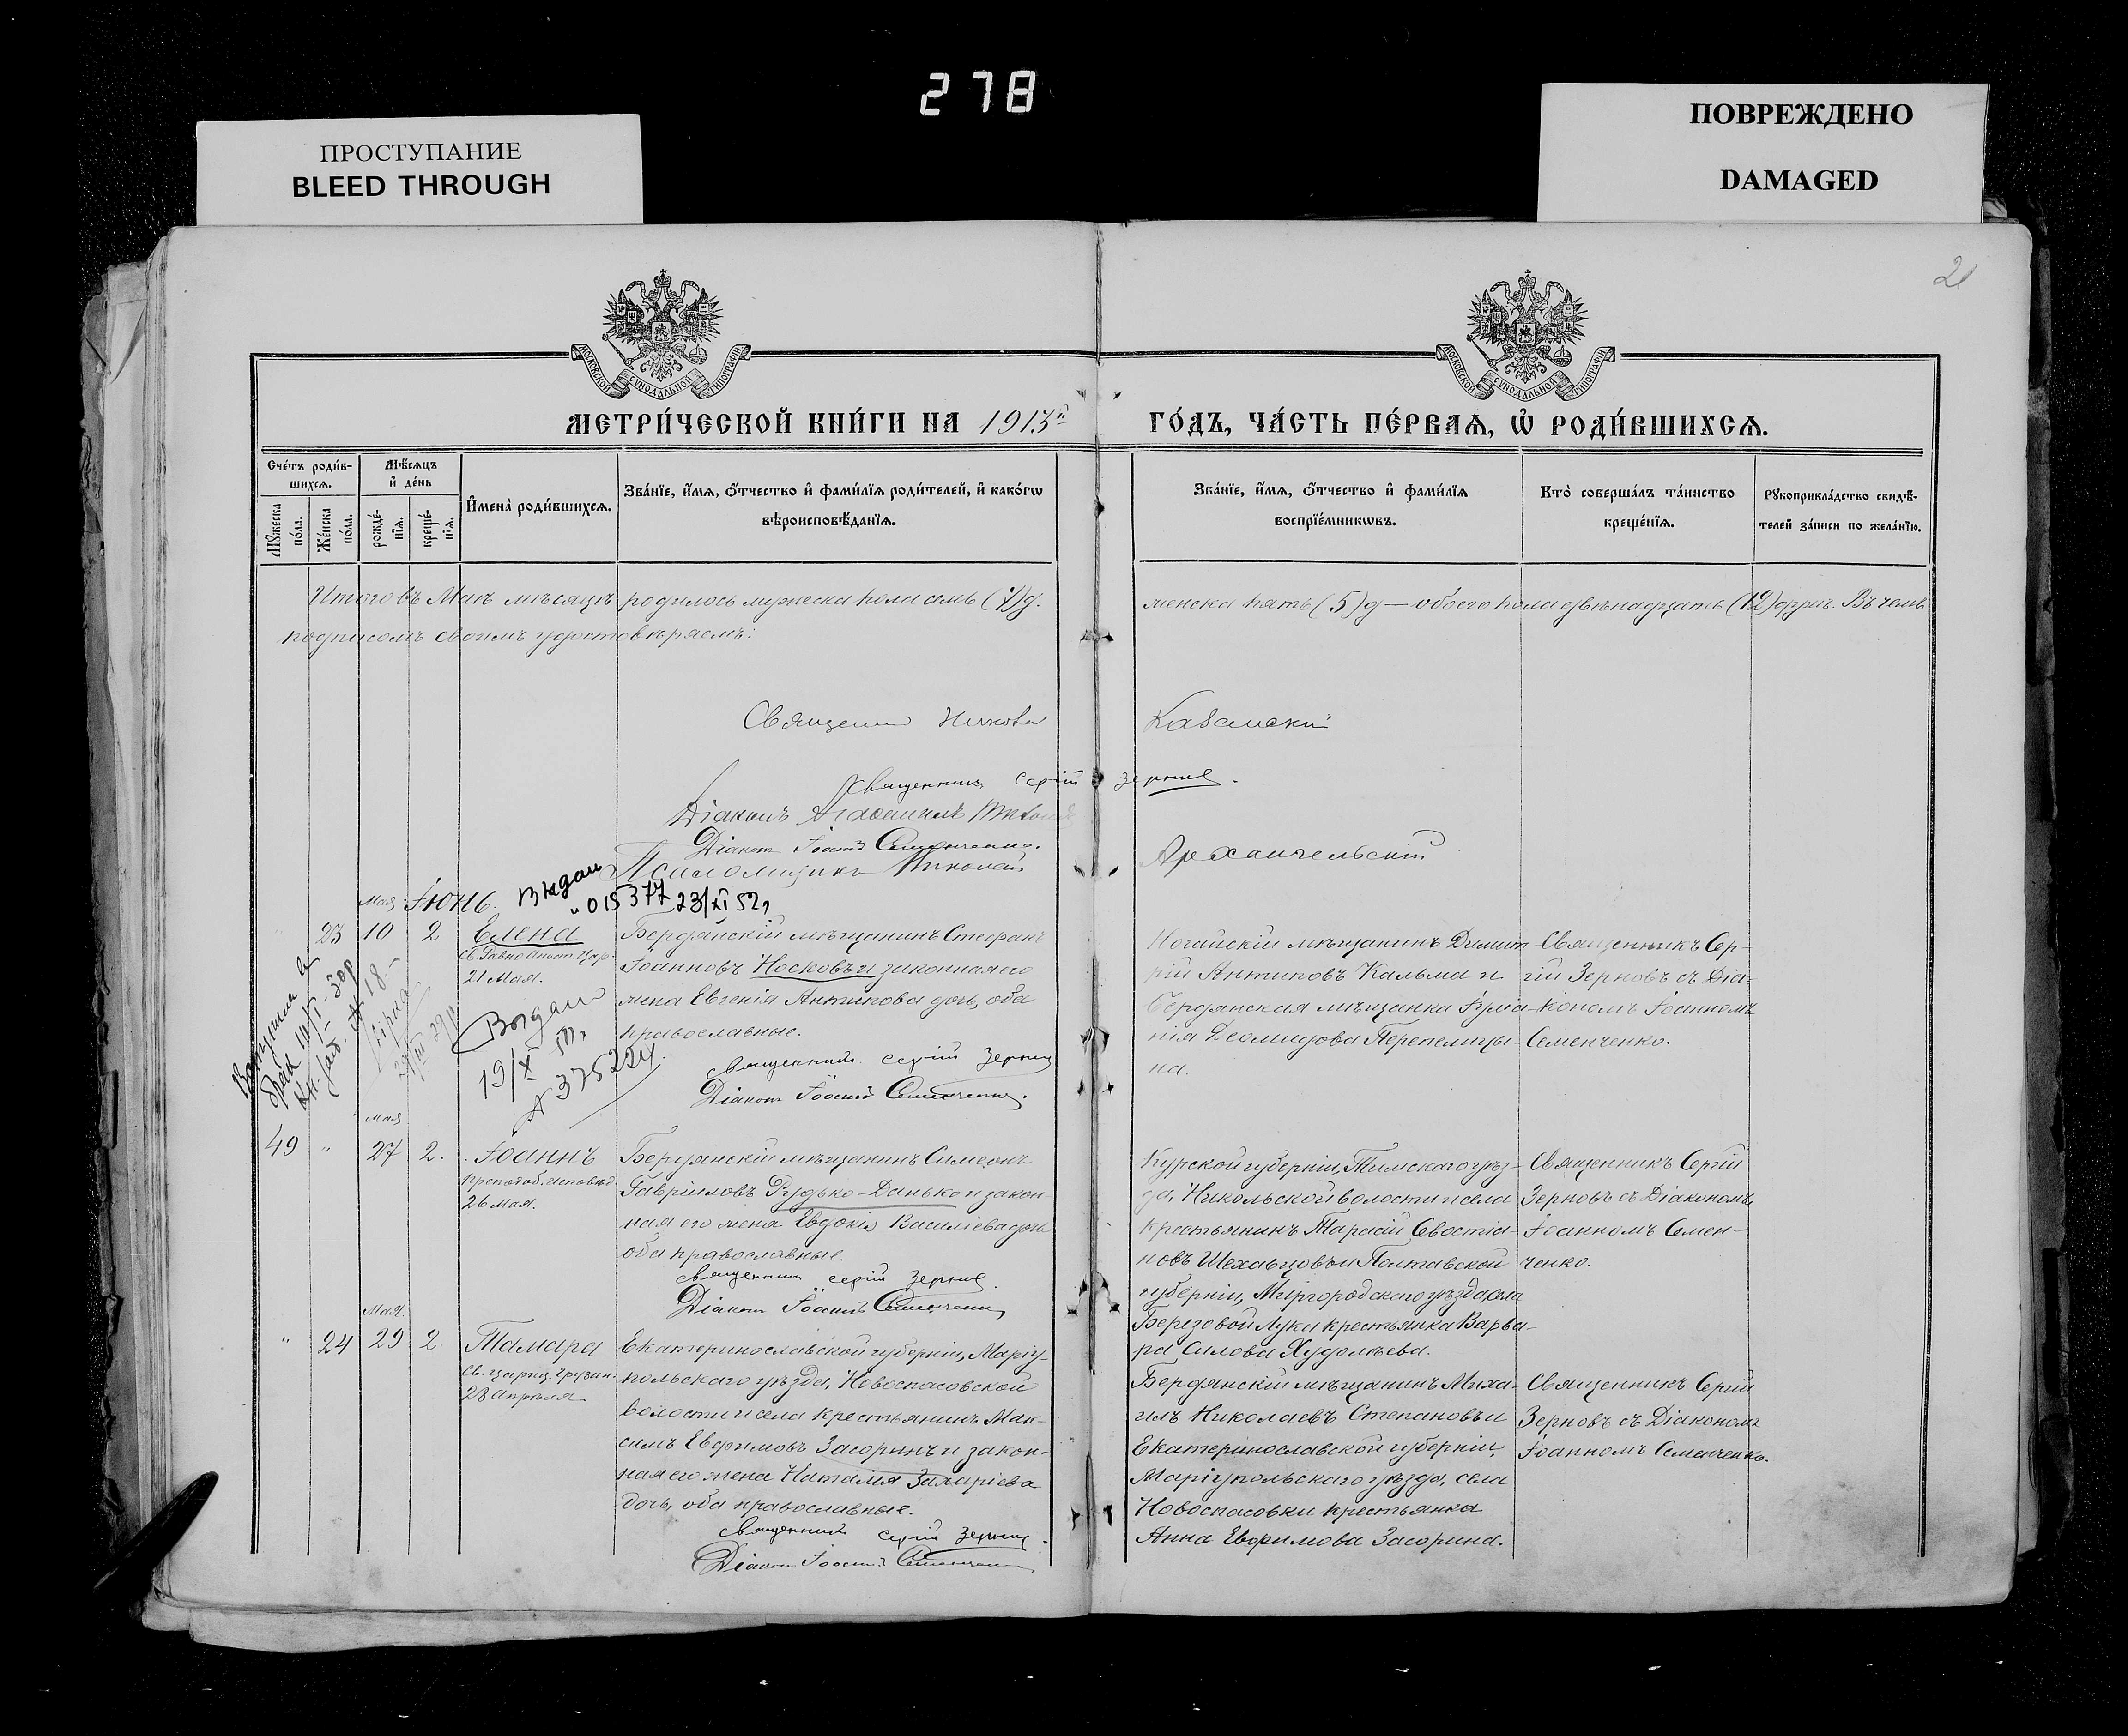 278
ПРОСТУПАНИЕ
BLEED THROUGH
ПОВРЕЖДЕНО
DAMAGED
МОСКОВСКОЙ СУНОДАЛЬНОЙ ТИПОГРАФІИ
МОСКОВСКОЙ СУНОДАЛЬНОЙ ТИПОГРАФІИ
МЕТРИ́ЧЕСКОЙ КНИ́ГИ НА 1913й ГО́ДЪ, ЧА́СТЬ ПЕ́РВАѦ, Ѡ РОДИ́ВШИХСѦ.
Сче́тъ роди́в-
шихсѧ.
Мꙋжеска
по́ла.
Же́нска
по́ла.
Мѣ́сѧцъ
и҆ де́нь
рожде́-
нїѧ.
креще́-
нїѧ.
И҆мена̀ роди́вшихсѧ.
Зва́нїе, и҆́мѧ, ѻ҆́тчество и҆ фами́лїѧ роди́телей, и҆ како́гѡ
вѣроисповѣ́данїѧ.
Зва́нїе, и҆́мѧ, ѻ҆́тчество и҆ фами́лїѧ
воспрїе́мникѡвъ.
Кто̀ соверша́лъ та́инство
креще́нїѧ.
Рꙋкоприкла́дство свидѣ́-
телей за́писи по жела́нїю.
Итого въ Маѣ мѣсяцѣ родилось мужеска пола семь (7) д. женска пять (5) д — обоего пола двѣнадцать (12) душъ. Въ чемъ
подписомъ своимъ удостовѣряемъ:
Казанскій
Священникъ Сергій Зерновъ.
Діаконъ
Діаконъ Іоаннъ Семенченко.
Псаломщикъ Николай Архангельскій
Мая Іюнь. Выдан
015377 23/XI 52,
23 10 2 Елена
Св. Равноапост. Цар.
21 Мая.
Бердянскій мѣщанинъ Стефанъ
Іоанновъ Носковъ и законная его
жена Евгенія Антипова дочь, оба
православные.
Священникъ Сергій Зерновъ
Діаконъ Іоаннъ Семенченко.
Ногайскій мѣщанинъ Димит-
рій Антиповъ Кальма и
Бердянская мѣщанка Іуліа-
нія Деомидова Перепелицы-
на.
Священникъ Сер-
гій Зерновъ съ Діа-
кономъ Іоанномъ
Семенченко.
Вступила в
брак
Выдан
19/X
№ 375224
Мая
49 " 27 2. Іоаннъ
преподоб. исповѣд.
26 Мая.
Бердянскій мѣщанинъ Симеонъ
Гавріиловъ Рудько-Данько и закон
ная его жена Евдокія Василіева дочь
оба православные.
Священникъ Сергій Зерновъ.
Діаконъ Іоаннъ Семенченко
Курской губерніи, Тимскаго уѣз-
да, Никольской волости и села
крестьянинъ Тарасій Севастіа-
новъ Шехавцовъ и Полтавской
губерніи, Миргородскаго уѣзда, села
Березовой Луки крестьянка Варва-
ра Силова Худолѣева.
Священникъ Сергій
Зерновъ съ Діакономъ
Іоанномъ Семен-
ченко.
Мая.
" 24 29 2 Тамара
Св. цариц. Грузин.
28 Апрѣля
Екатеринославской губерніи, Маріу-
польскаго уѣзда, Новоспасовской
волости и села крестьянинъ Мак-
симъ Евфимовъ Засоринъ и закон-
ная его жена Наталія Захаріева
дочь, оба православные.
Священникъ Сергій Зерновъ.
Діаконъ Іоаннъ Семенченко
Бердянскій мѣщанинъ Миха-
илъ Николаевъ Степановъ и
Екатеринославской губерніи,
Маріупольскаго уѣзда, села
Новоспасовки крестьянка
Анна Евфимова Засорина.
Священникъ Сергій
Зерновъ съ Діакономъ
Іоанномъ Семенченко.